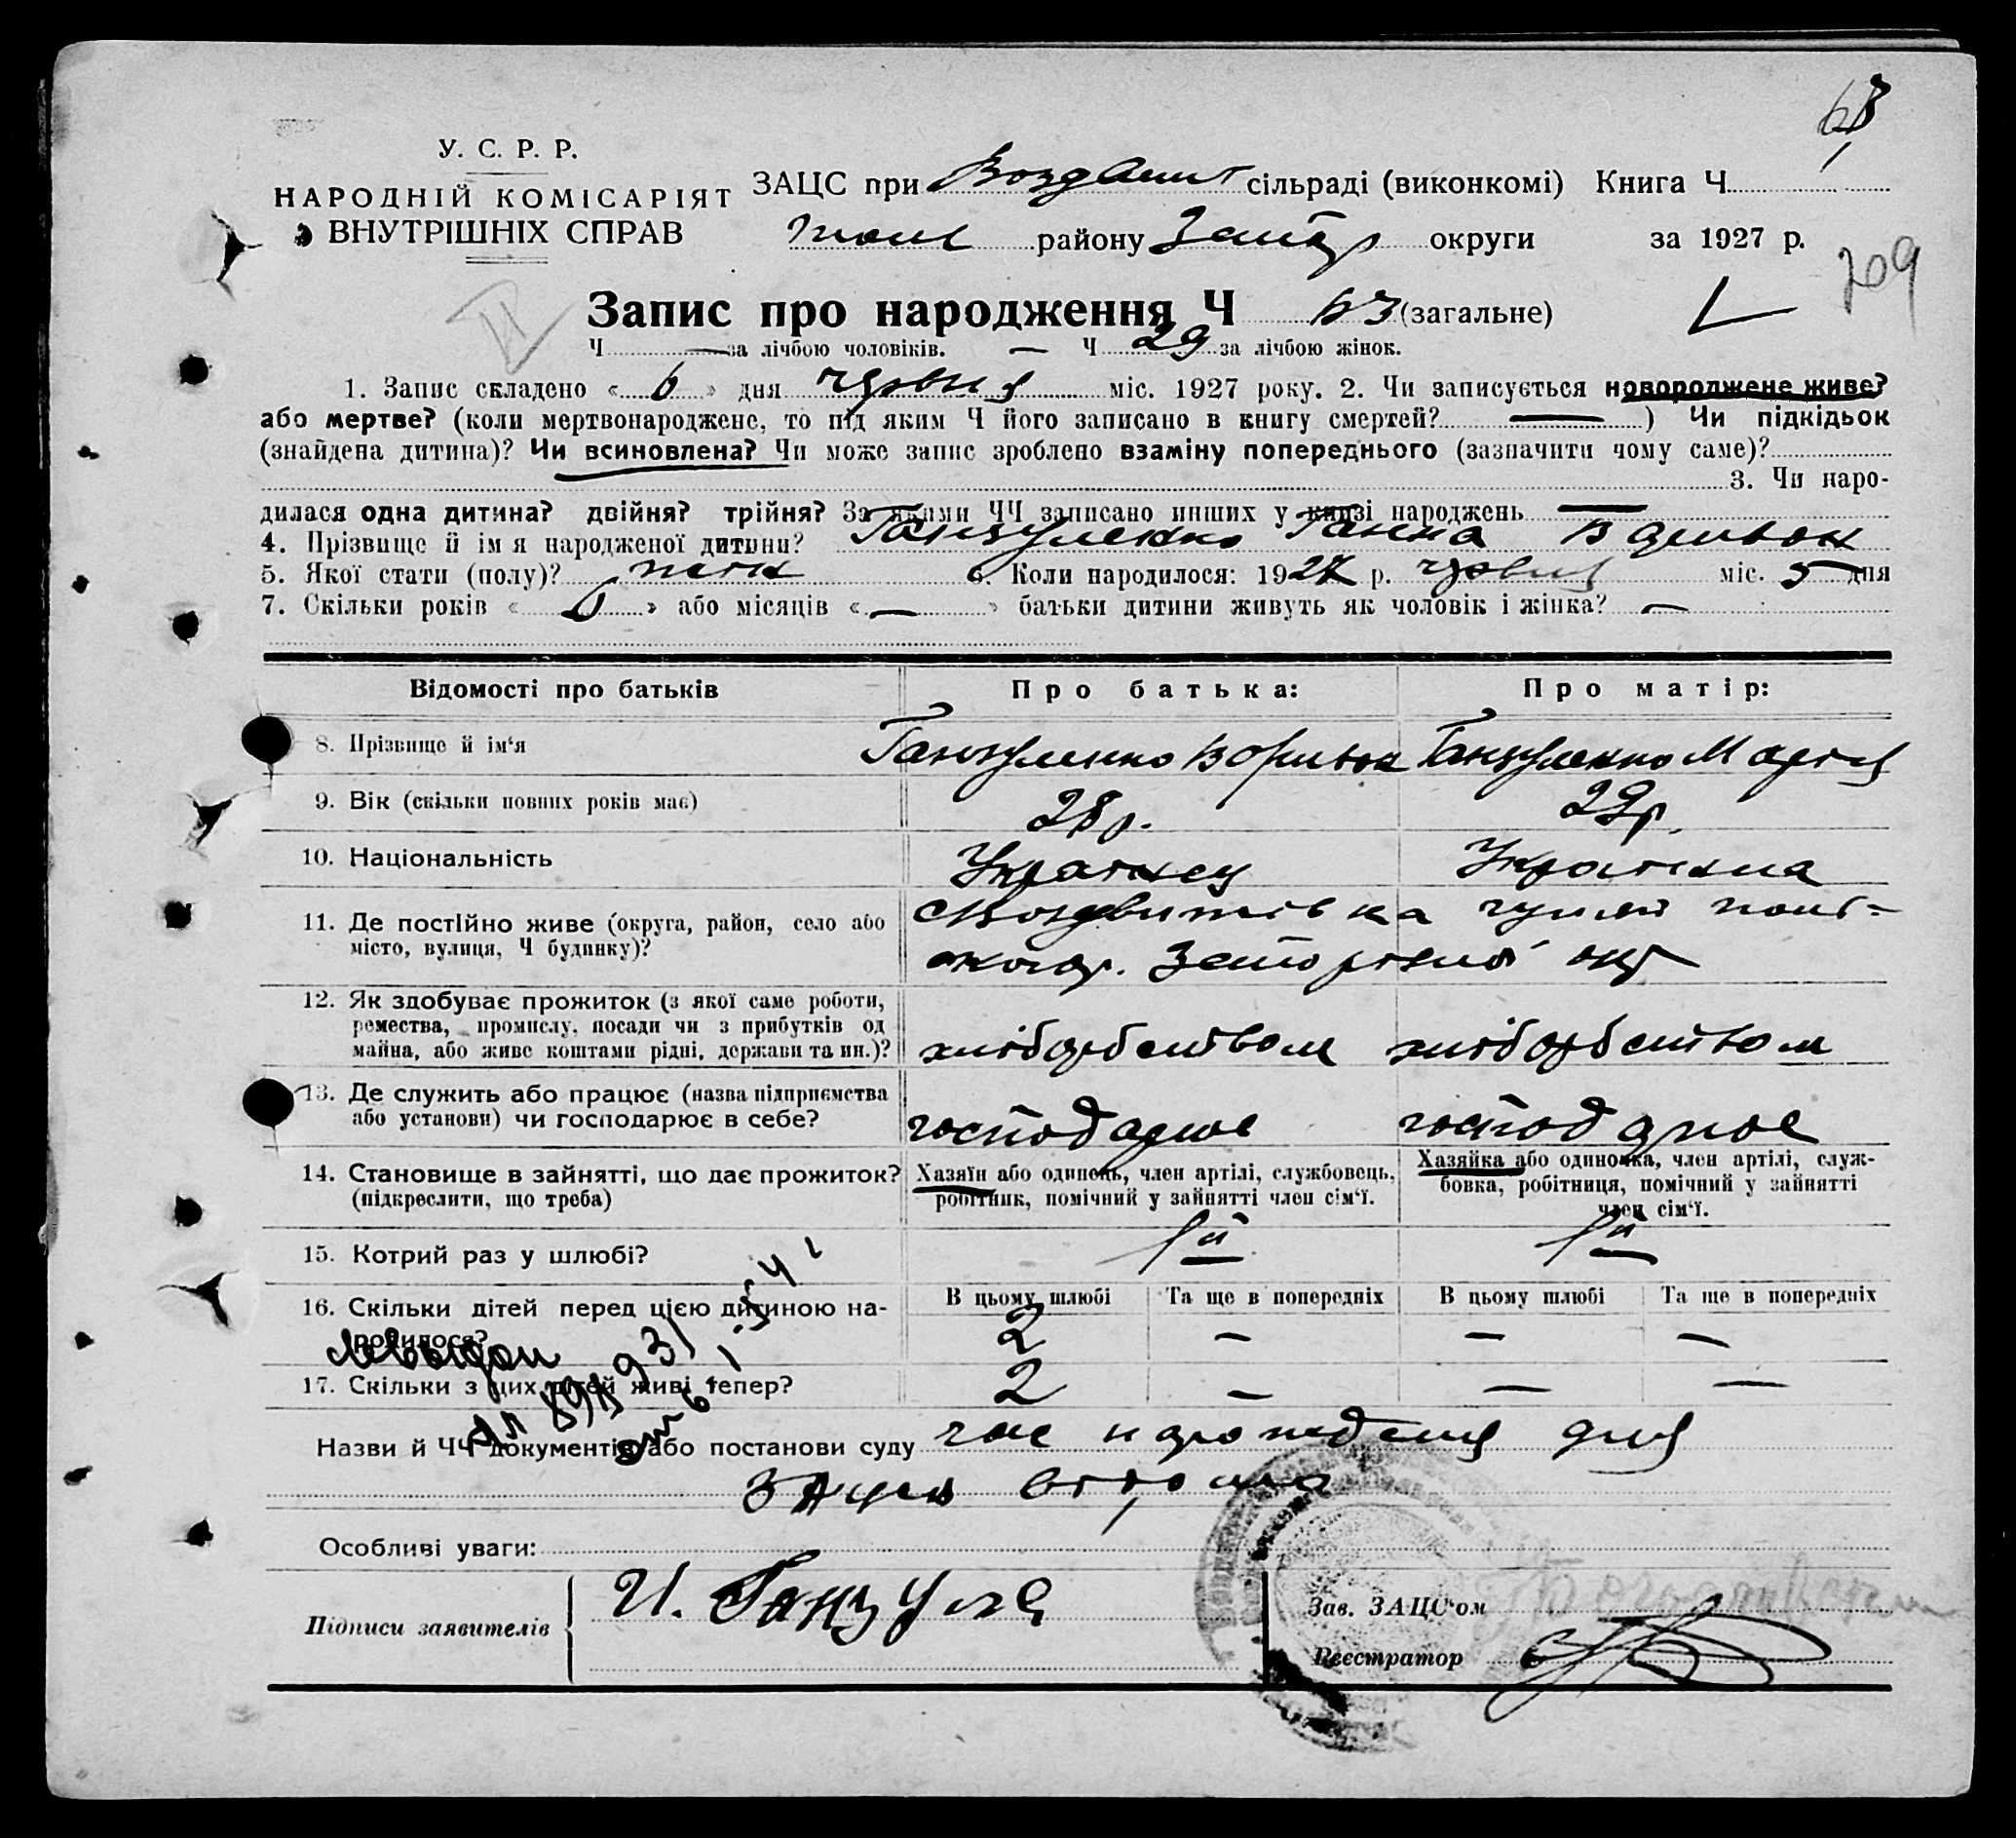 63
У. С. Р. Р.
НАРОДНІЙ КОМІСАРІЯТ
ВНУТРІШНІХ СПРАВ
ЗАЦС при сільраді (виконкомі) Книга Ч
району округи за 1927 р.
209
Запис про народження Ч 63 (загальне)
Ч — за лічбою чоловіків. — Ч 29 за лічбою жінок.
1. Запис складено « 6 » дня червня міс. 1927 року. 2. Чи записується новороджене живе?
або мертве? (коли мертвонароджене, то під яким Ч його записано в книгу смертей? — ) Чи підкідьок
(знайдена дитина)? Чи всиновлена? Чи може запис зроблено взаміну попереднього (зазначити чому саме)?
3. Чи наро-
дилася одна дитина? двійня? трійня? За якими ЧЧ записано инших у книзі народжень —
4. Прізвище й ім я народженої дитини? Ганзуленко Ганна
5. Якої статі (полу)? 6. Коли народилося: 1927 р. червня міс. 5 дня
7. Скільки років « 6 » або місяців « — » батьки дитини живуть як чоловік і жінка? —
Відомості про батьків Про батька: Про матір:
8. Прізвище й ім‘я Ганзуленко Ганзуленко Марія
9. Вік (скільки повних років має) 28 р. 29 р.
10. Національність Українец Українка
11. Де постійно живе (округа, район, село або
місто, вулиця, Ч будинку)?
12. Як здобуває прожиток (з якої саме роботи,
ремества, промислу, посади чи з прибутків од
майна, або живе коштами рідні, держави та ин.)? хліборобством хліборобством
13. Де служить або працює (назва підприємства
або установи) чи господарює в себе? господарює господарює
14. Становище в зайнятті, що дає прожиток?
(підкреслити, що треба)
Хазяїн або одинець, член артілі, службовець,
робітник, помічний у зайнятті член сім‘ї.
Хазяйка або одиночка, член артілі, служ-
бовка, робітниця, помічний у зайнятті
член сім‘ї.
15. Котрий раз у шлюбі? 1й 1й
16. Скільки дітей перед цією дитиною на-
родилося?
В цьому шлюбі Та ще в попередніх В цьому шлюбі Та ще в попередніх
2 — — —
17. Скільки з цих дітей живі тепер? 2 — — —
Назви й ЧЧ документів або постанови суду
Особливі уваги:
Підписи заявителів И. Ганзуля
Зав. ЗАЦС‘ом
Реєстратор